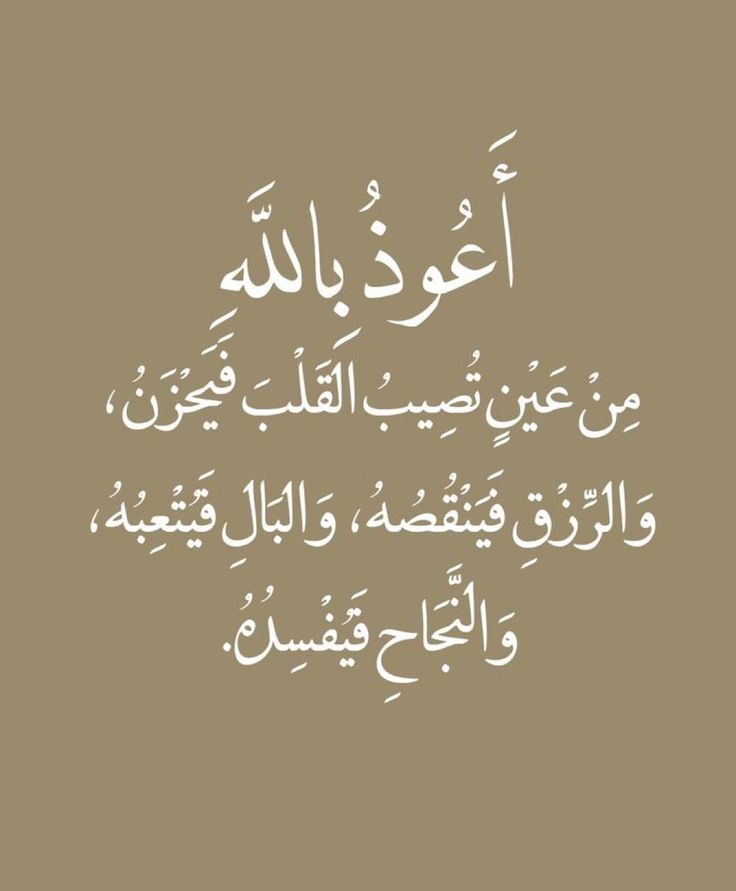 أَعُوذُ بِاللَّهِ
مِنْ عَيْنٍ تُصِيبُ القَلْبَ فَيَحْزَنُ،
وَالرِّزْقِ فَيَنْقُصُهُ، وَالبَالِ فَيُتْعِبُهُ،
وَالنَّجَاحِ فَيُفْسِدُهُ.